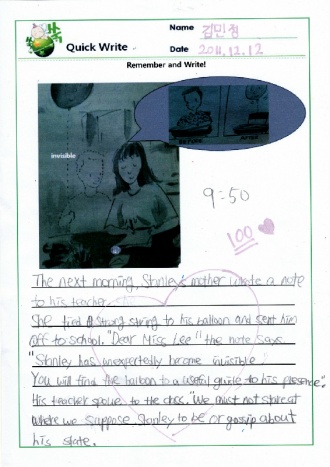 Name 김민철
Quick Write
Date 2011.12.12
Remember and Write!
BEFORE
AFTER
invisible
9:50
100
The next morning, Stanley's mother wrote a note
to his teacher.
She tied a strong string to his balloon and sent him
off to school. "Dear Miss Lee" the note says
"Stanley has unexpertedly become invisible.
You will find the balloon to a useful guide to his presence".
His teacher spoke to the class. "We must not stare at
where we suppose Stanley to be or gossip about
his state.